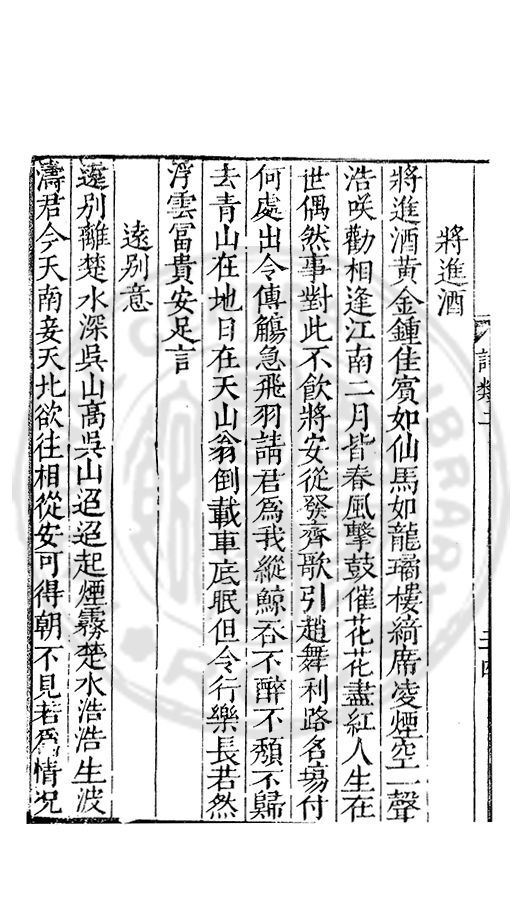 將進酒
將進酒黃金鍾佳賓如仙馬如龍璚樓綺席凌煙空一聲
浩唉勸相逢江南二月皆春風擊鼓催花花盡紅人生在
世偶然事對此不飲將安從發齊歌引趙舞利路名場付
何處出令傳觴急飛羽請君為我縱鯨吞不醉不頹不歸
去青山在地日在天山翁倒載車底眠但令行樂長若然
浮雲冨貴安足言
遠別意
遠別離楚水深吳山高吳山迢迢起煙霧楚水浩浩生波
濤君今天南妾天北欲往相從安可得朝不見若為情况
詩類二
二四